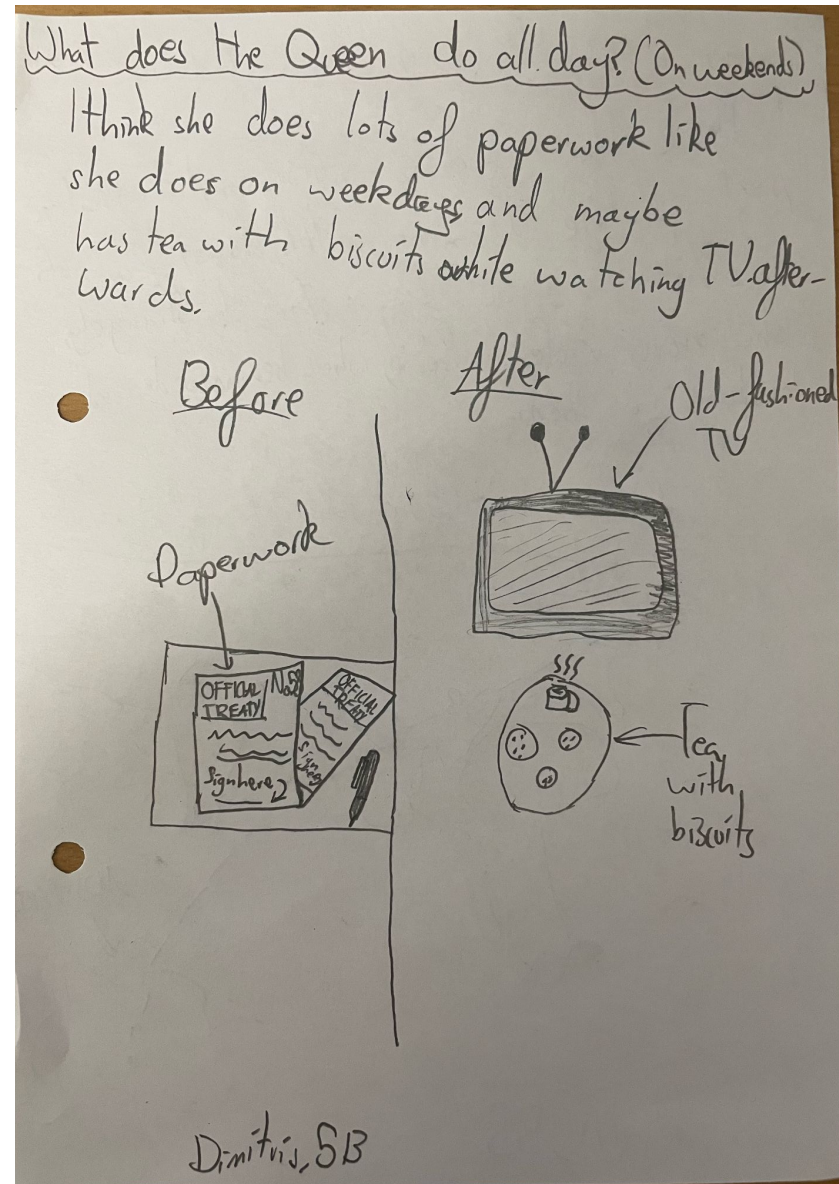 What does the Queen do all day? (On weekends)
I think she does lots of paperwork like
she does on weekdays and maybe
has tea with biscuits while watching TV after-
wards.
Before
After
Old-fashioned
TV
Paperwork
OFFICIAL
TREATY
Sign here
OFFICIAL
TREATY
Sign
here
Tea
with
biscuits
Dimitris, 5B